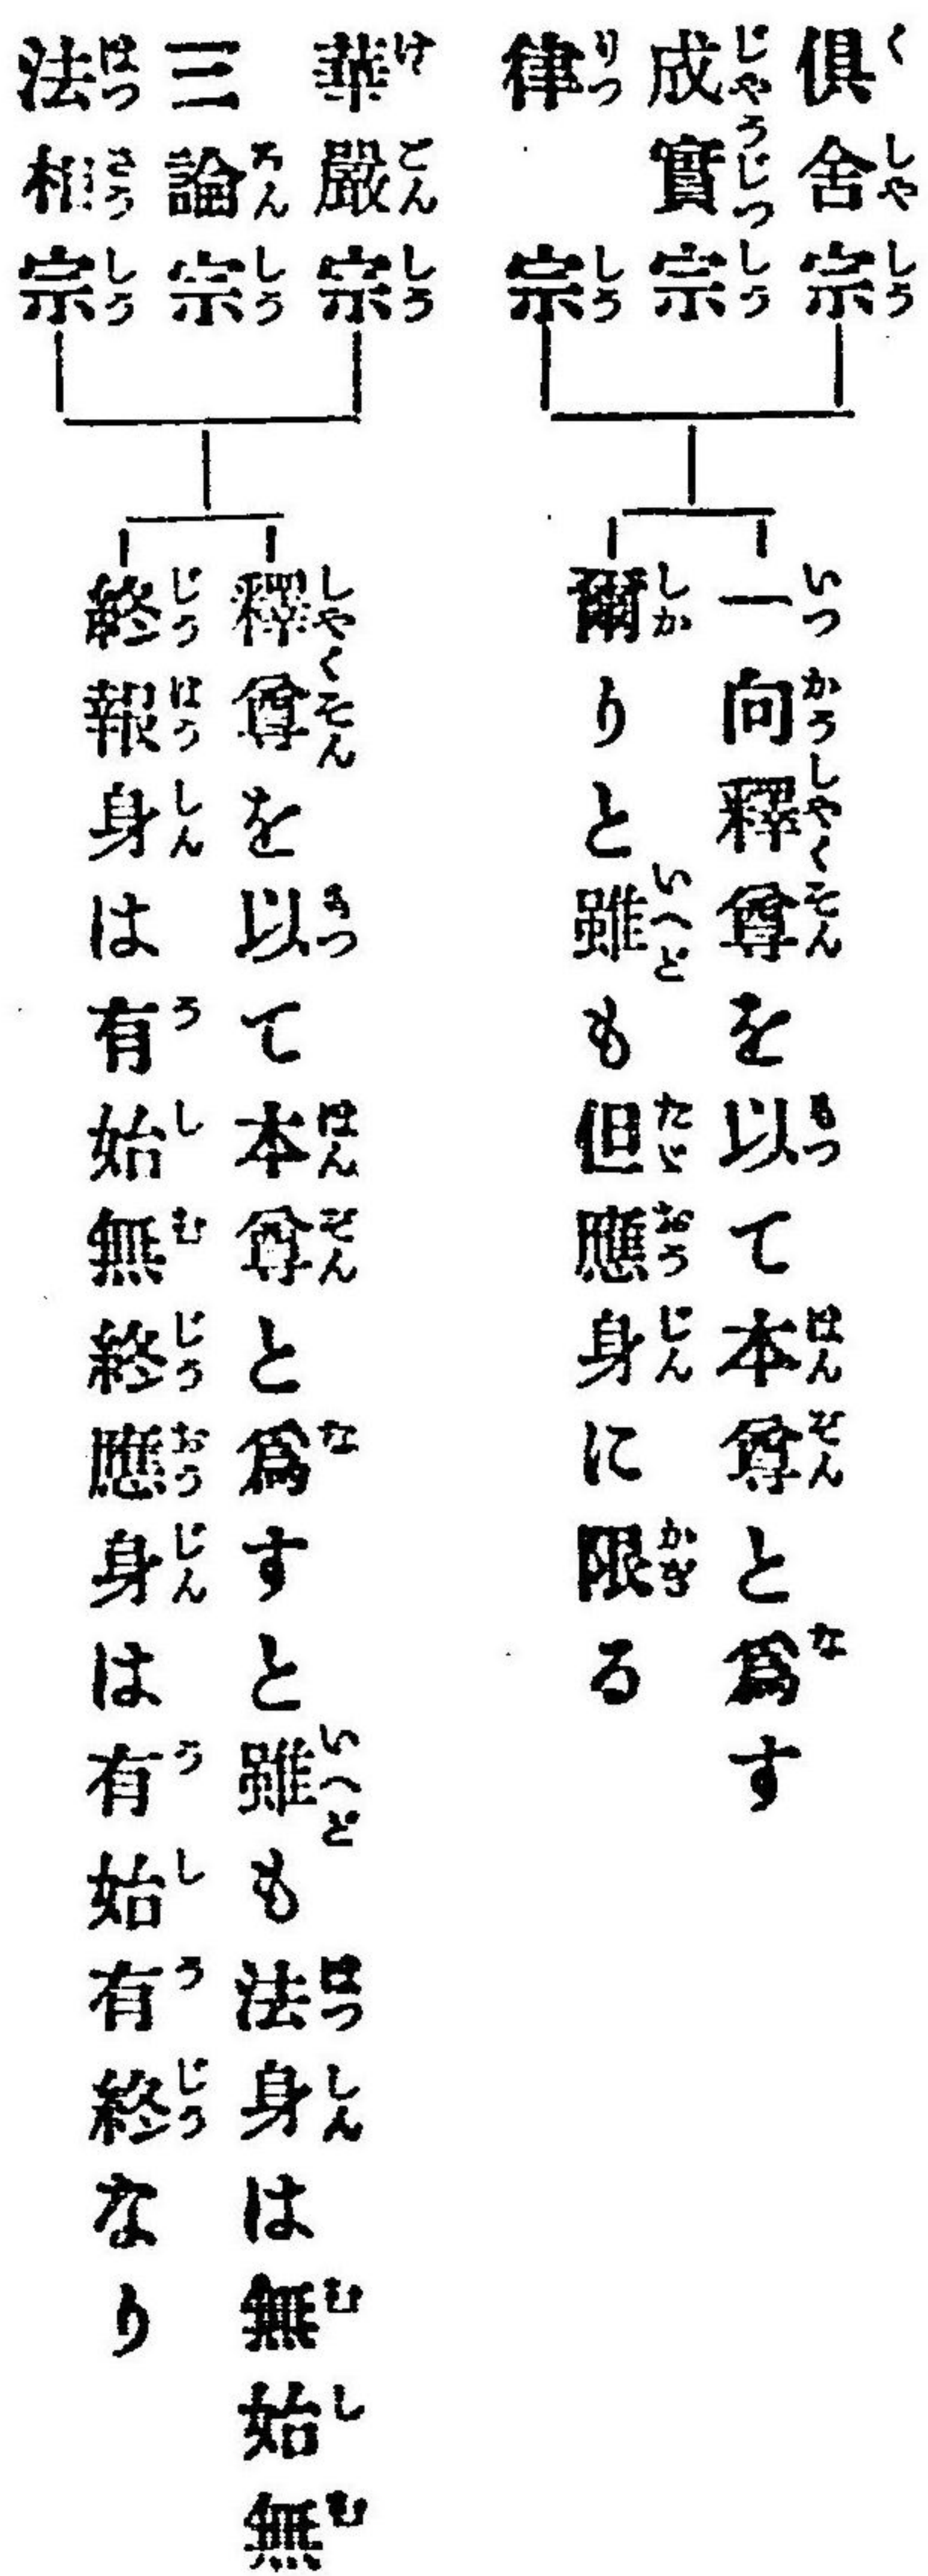 俱舍宗
成實宗
律宗
一向釋尊を以て本尊と爲す
爾りと雖も但應身に限る
華嚴宗
三論宗
法相宗
釋尊を以て本尊と爲すと雖も法身は無始無
終報身は有始無終應身は有始有終なり